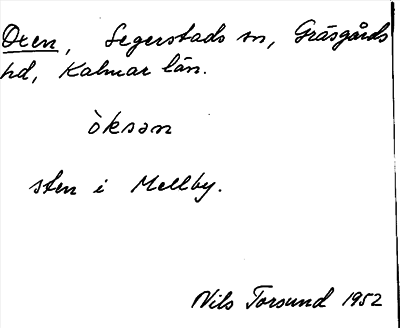 Oxen, Segerstads sn, Gräsgårds
hd, Kalmar län.
òksən
sten i Mellby.
Nils Torsund 1952